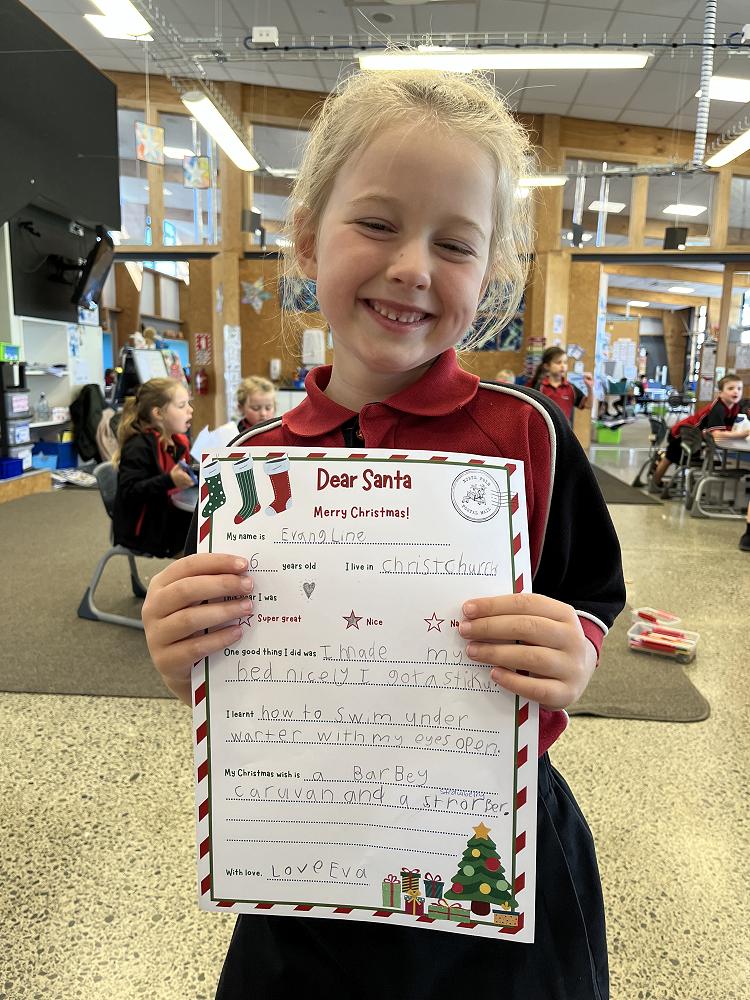 Dear Santa
Merry Christmas!
NORTH POLE
POSTAL MAIL
My name is Evangline
6 years old I live in christchurch
This year I was
Super great Nice Na
One good thing I did was I made my
bed nicely I got a sticky.
I learnt how to swim under
warter with my eyes open.
My Christmas wish is a BarBey
strawberry
caruvan and a strorBer.
With love, Love Eva